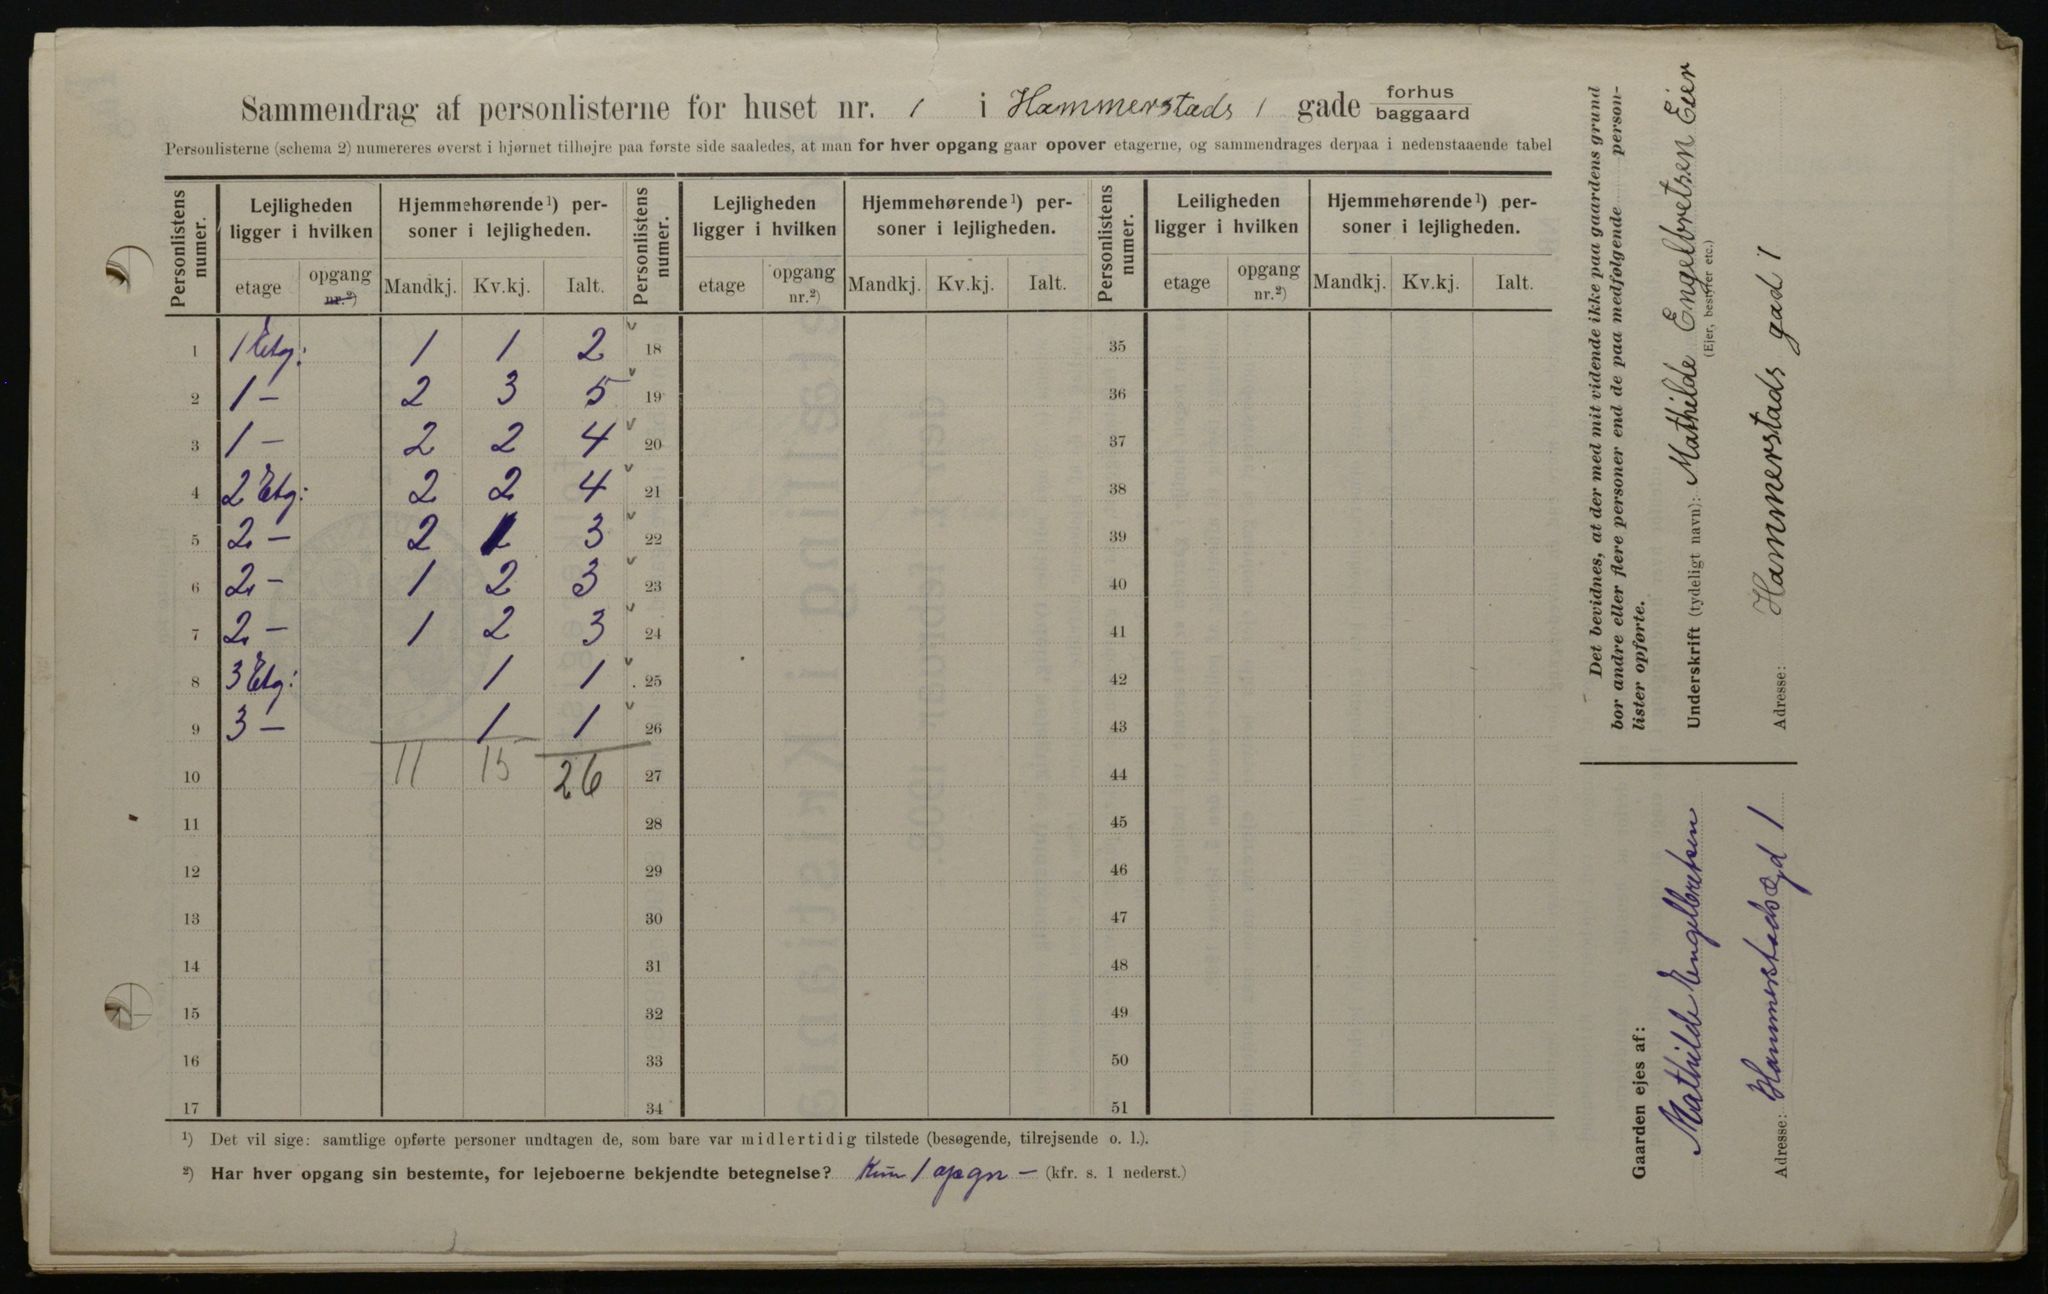 Sammendrag af personlisterne for huset nr. 1 i Hammerstads 1 gade forhus baggaard
Personlisterne (schema 2) numereres øverst i hjørnet tilhøjre paa første side saaledes, at man for hver opgang gaar opover etagerne, og sammendrages derpaa i nedenstaaende tabel
Personlistens numer. Lejligheden ligger i hvilken Hjemmehørende¹) personer i lejligheden. Personlistens numer. Lejligheden ligger i hvilken Hjemmehørende¹) personer i lejligheden. Personlistens numer. Leiligheden ligger i hvilken Hjemmehørende¹) personer i lejligheden.
etage opgang nr.²) Mandkj. Kv.kj. Ialt. etage opgang nr.²) Mandkj. Kv.kj. Ialt. etage opgang nr.²) Mandkj. Kv.kj. Ialt.
1 1 Etg: 1 1 2 18 35
2 1 — 2 3 5 19 36
3 1 — 2 2 4 20 37
4 2 Etg: 2 2 4 21 38
5 2 — 2 1 3 22 39
6 2 — 1 2 3 23 40
7 2 — 1 2 3 24 41
8 3 Etg: 1 1 25 42
9 3 — 1 1 26 43
10 11 15 26 27 44
11 28 45
12 29 46
13 30 47
14 31 48
15 32 49
16 33 50
17 34 51
¹) Det vil sige: samtlige opførte personer undtagen de, som bare var midlertidig tilstede (besøgende, tilrejsende o. l.).
²) Har hver opgang sin bestemte, for lejeboerne bekjendte betegnelse? Kun 1 opgn — (kfr. s. 1 nederst.)
Det bevidnes, at der med mit vidende ikke paa gaardens grund
bor andre eller flere personer end de paa medfølgende personlister opførte.
Underskrift (tydeligt navn): Mathilde Engelbretsen Eier
(Ejer, bestyrer etc.)
Adresse: Hammerstads gad 1
Gaarden ejes af:
Mathilde Engelbretsen
Adresse: Hammerstads gd 1